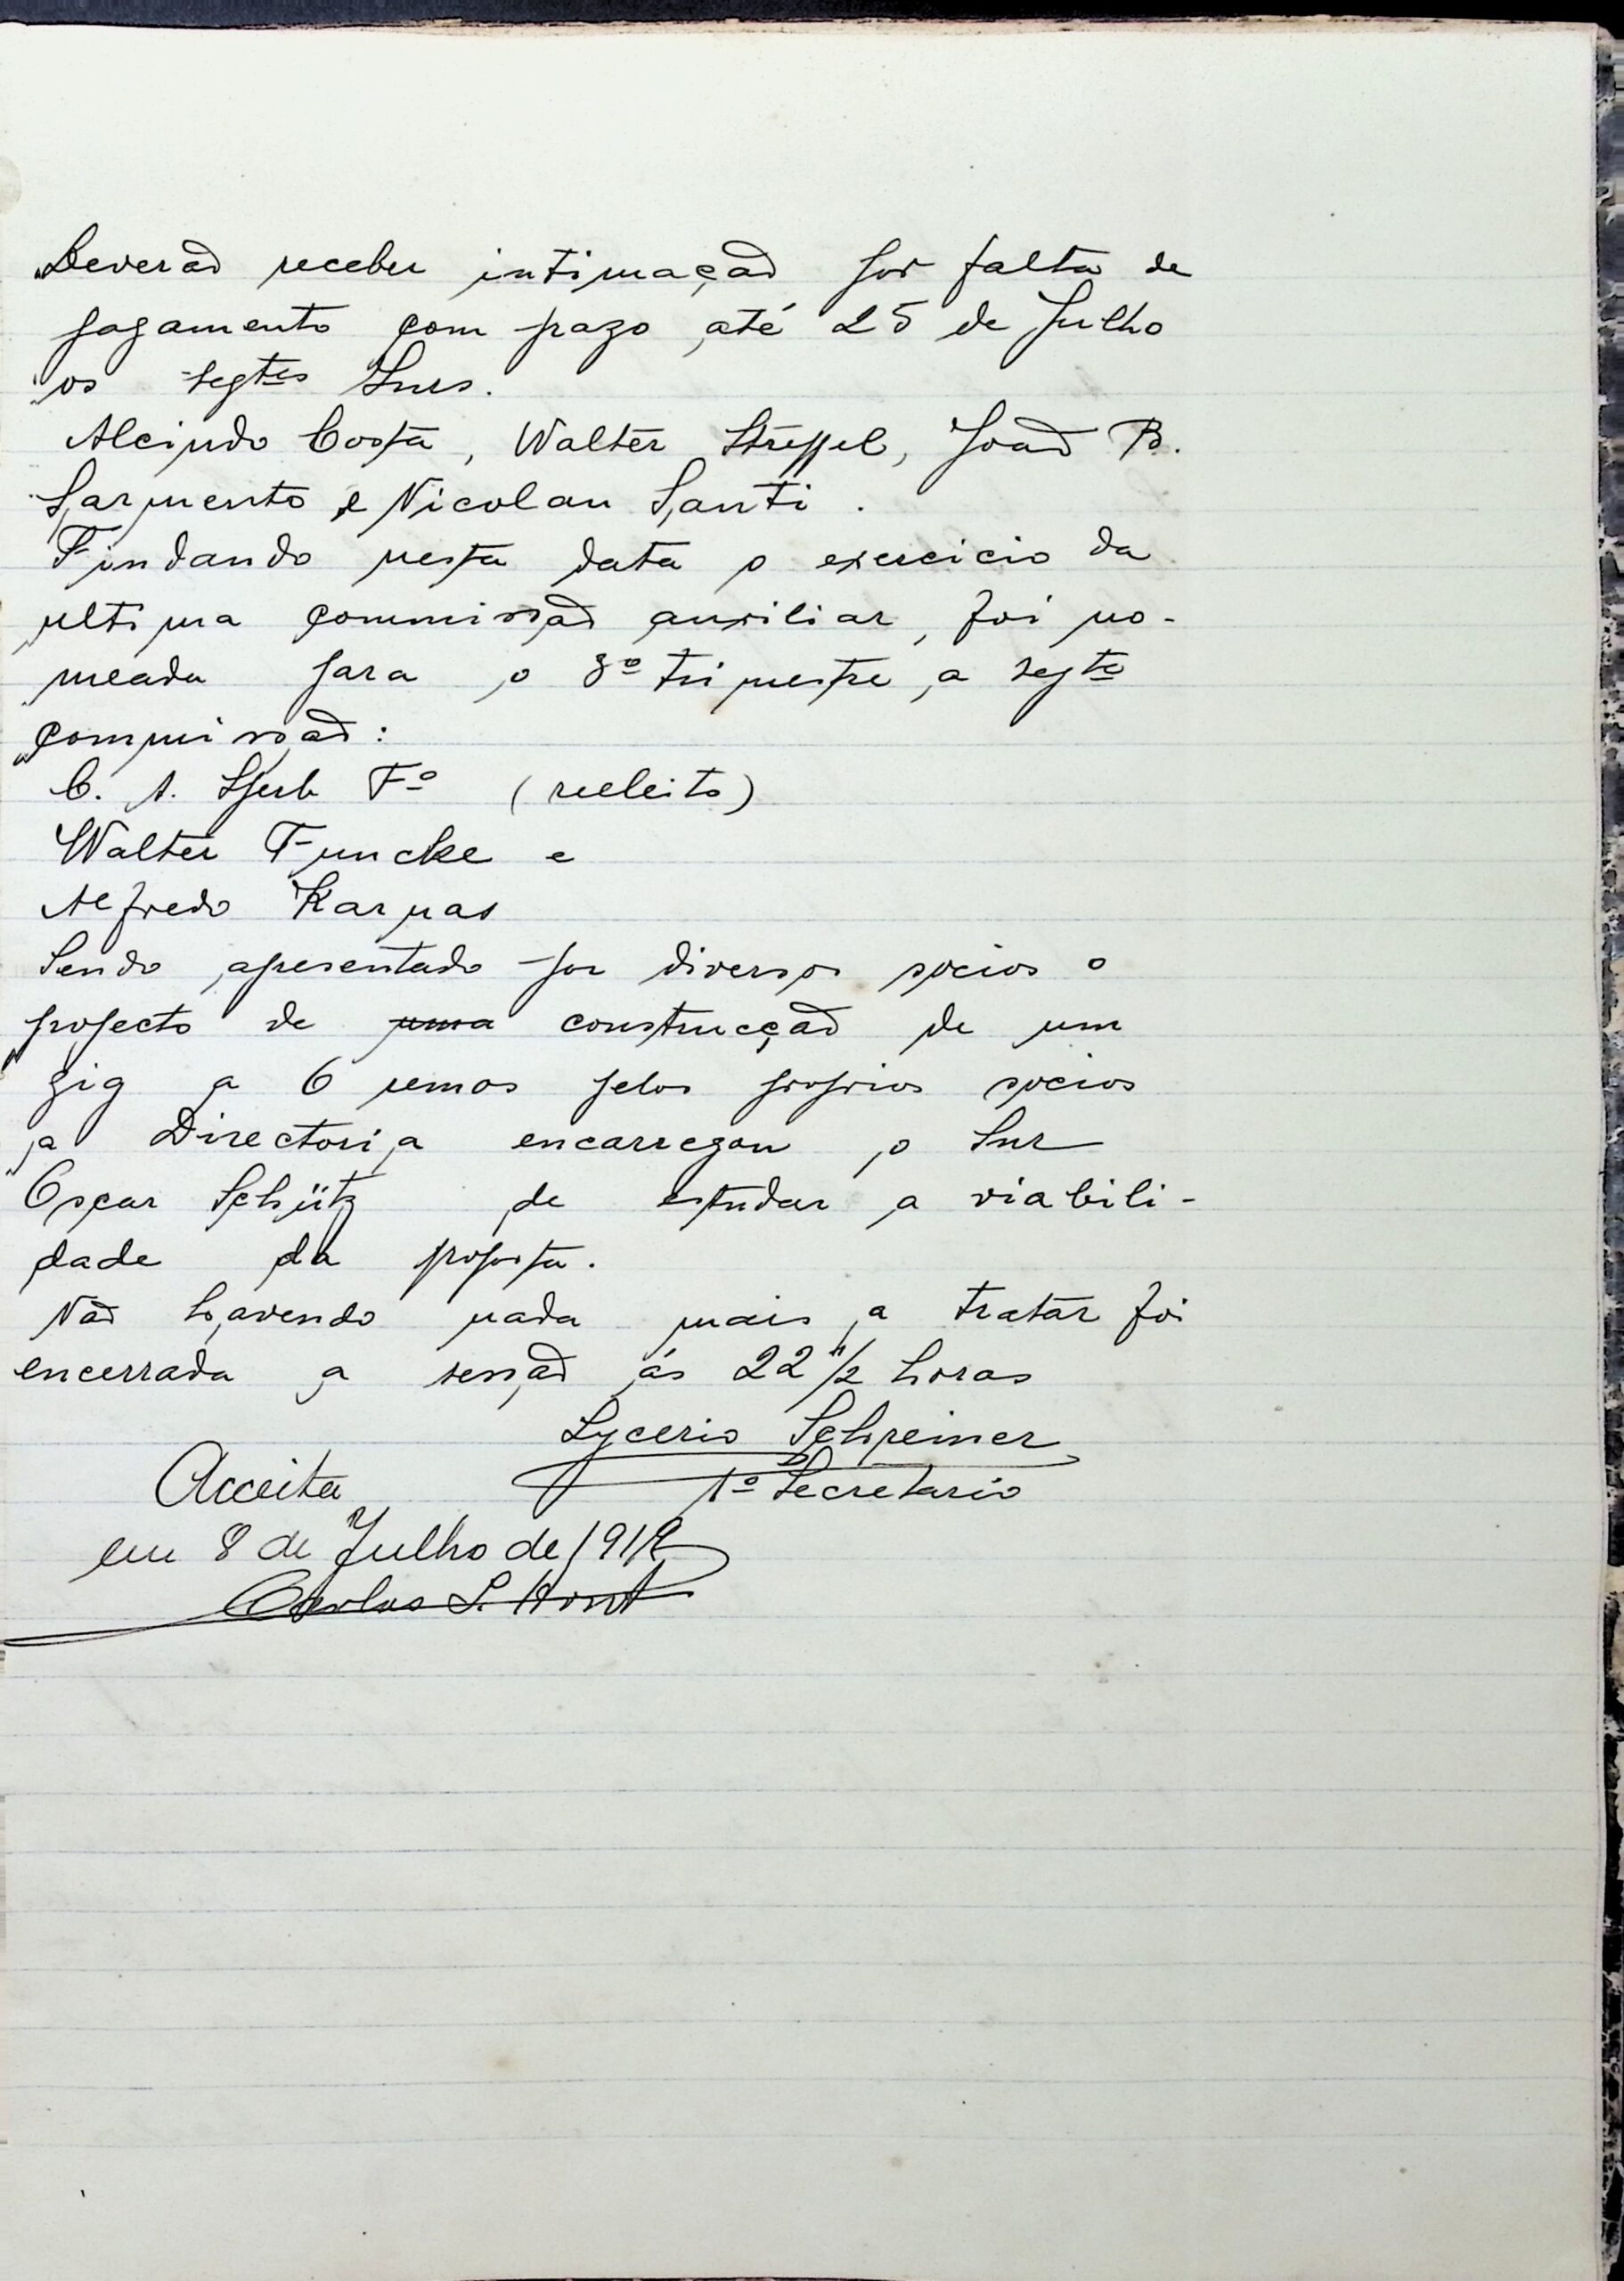 Deverão receber intimação por falta de
pagamento com prazo até 25 de Julho
os segtes Snrs.
Alcindo Costa, Walter Streppel, João B.
Sarmento e Nicolau Santi.
Findando nesta data o exercicio da
ultima commissão auxiliar, foi no-
meada para o 3º trimestre a segte
commissão:
C. A. Sperb Fº (reeleito)
Walter Funcke e
Alfredo Karnas
Sendo apresentado por diversos socios o
projecto de uma construcção de um
gig a 6 remos pelos proprios socios
a Directoria encarregou o Snr
Oscar Schütz de estudar a viabili-
dade da proposta.
Não havendo nada mais a tratar foi
encerrada a sessão ás 22 1/2 horas
Lycerio Schreiner
1º Secretario
Acceita
em 8 de Julho de 1918
Carlos S.